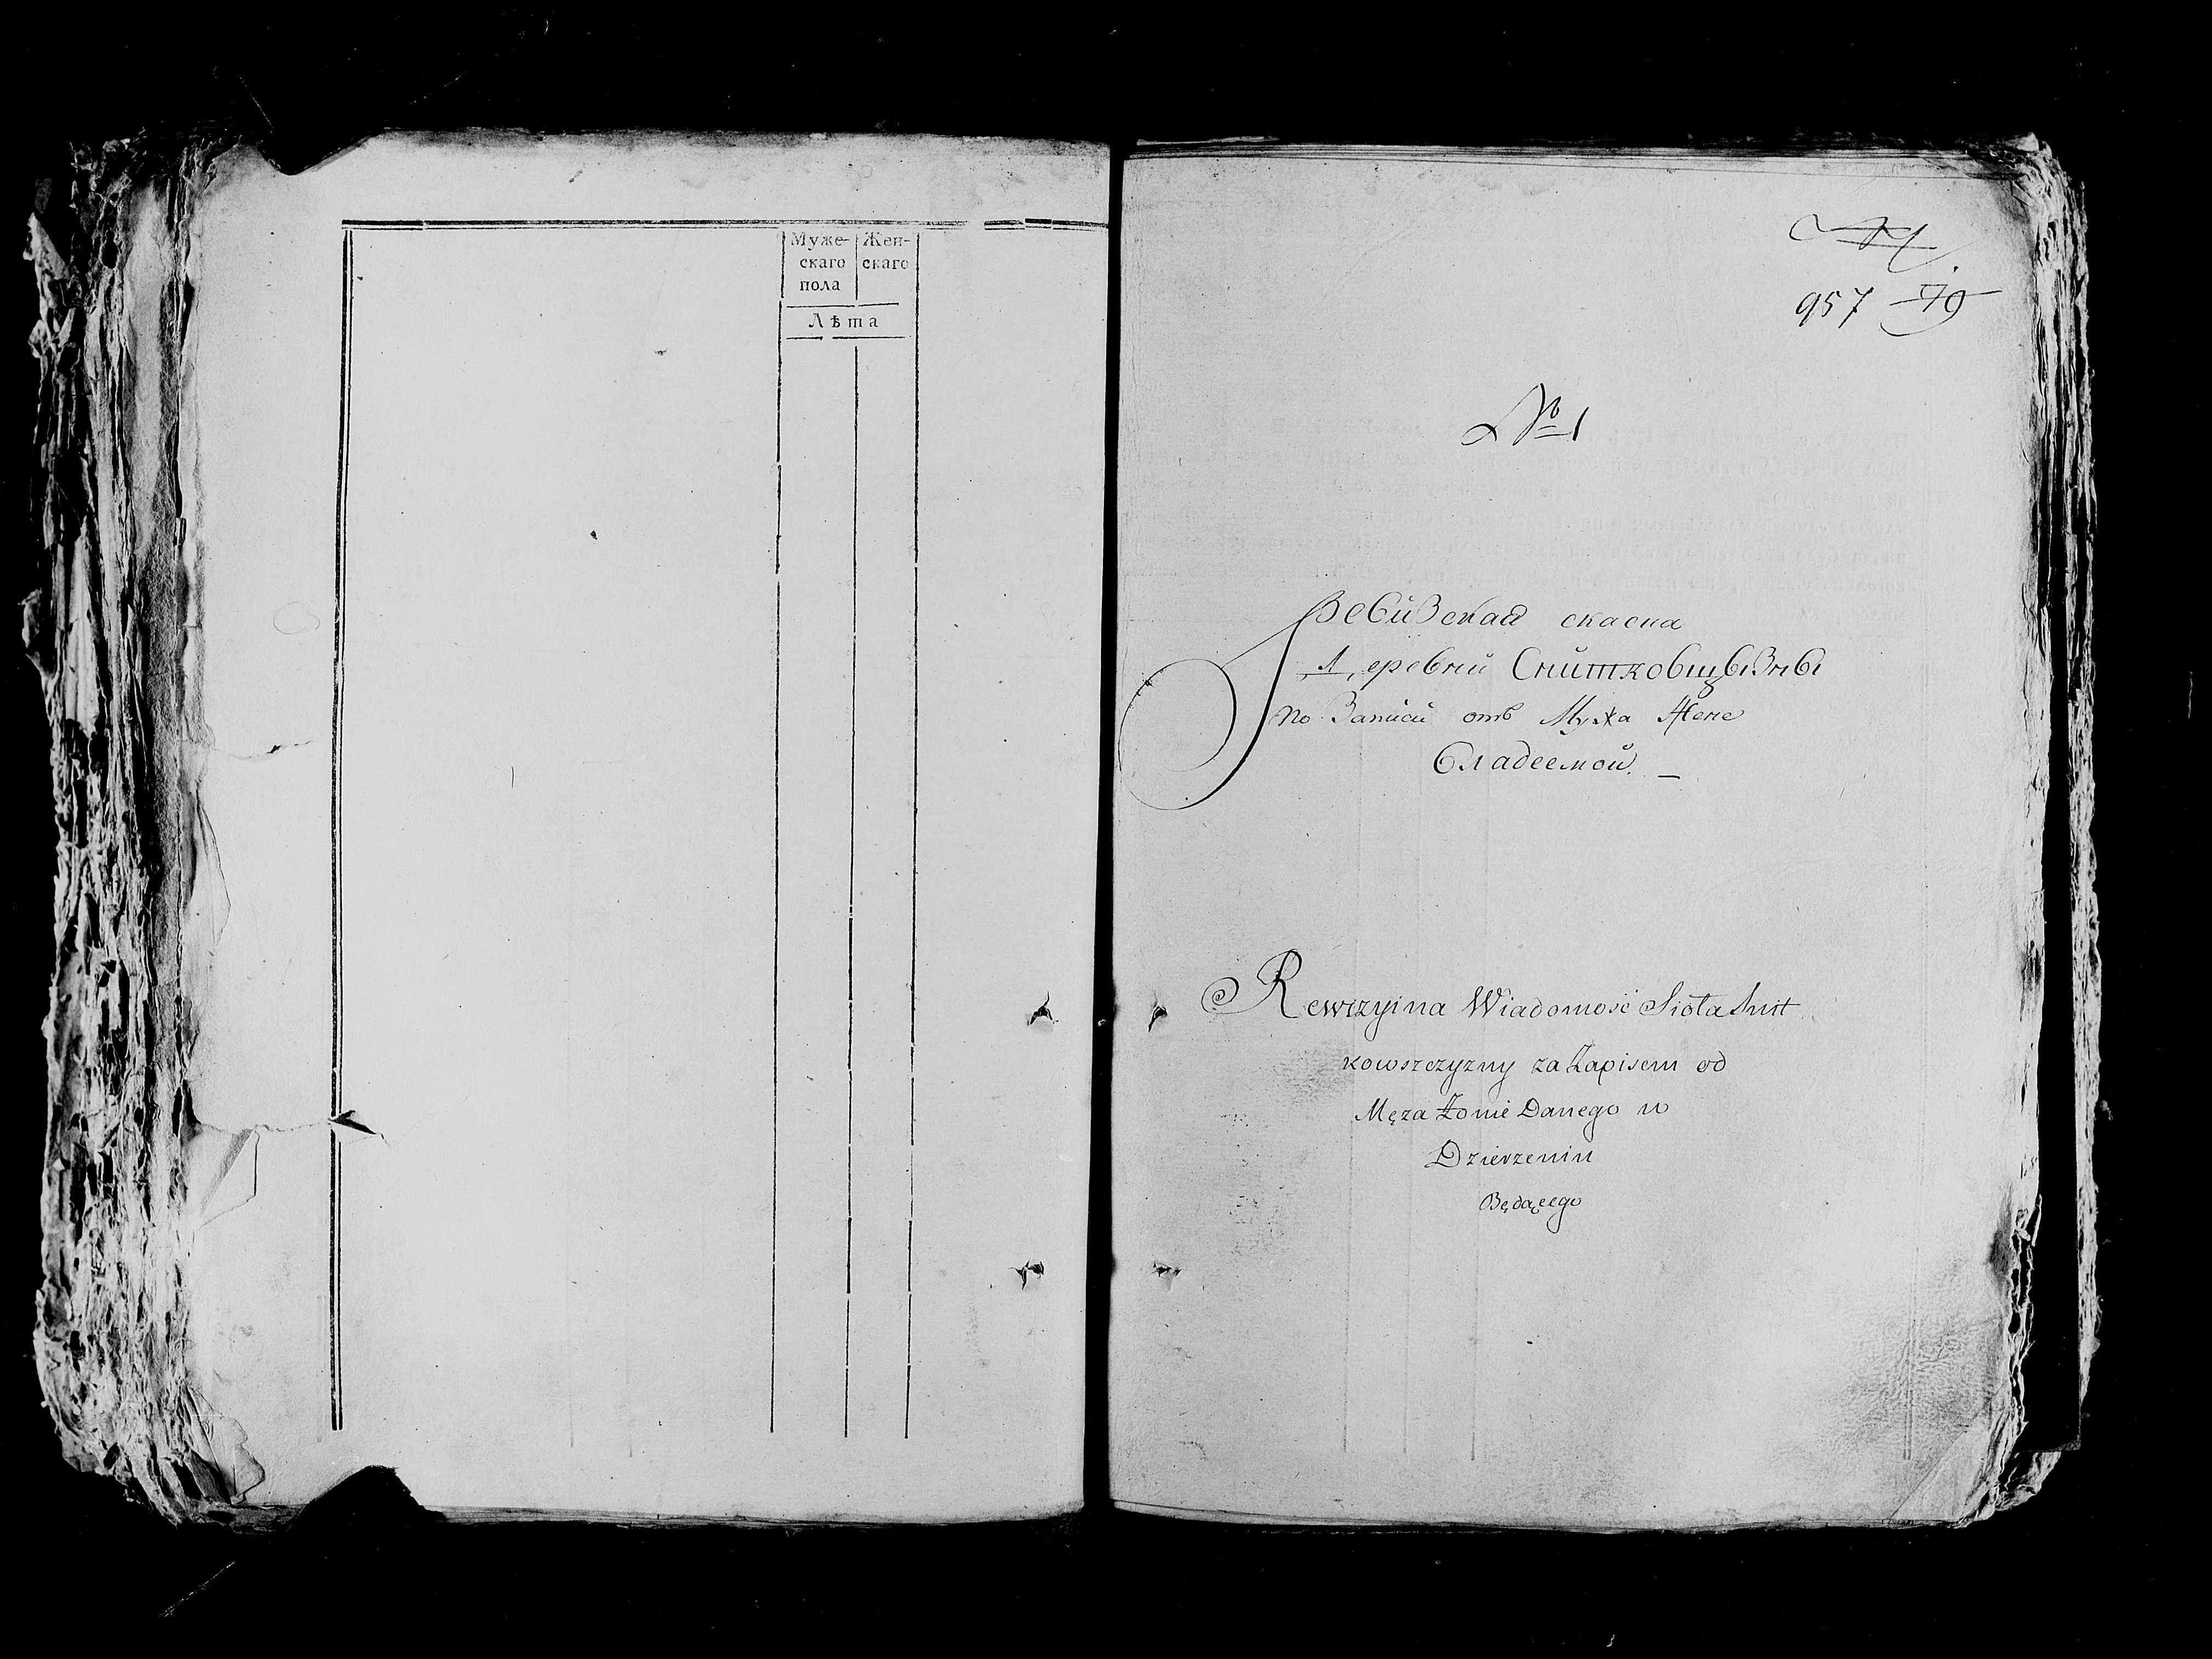 Муже-
скаго
пола
Жен-
скаго
Лѣта
957 79
№ 1
Ревизская скасна
деревни Снитковщызны
по Записи отъ Мужа Жене
Владеемой. —
Rewizyina Wiadomość Sioła Snit
kowszczyzny za Zapisem od
Męza Żonie Danego w
Dzierzeniu
Będącego